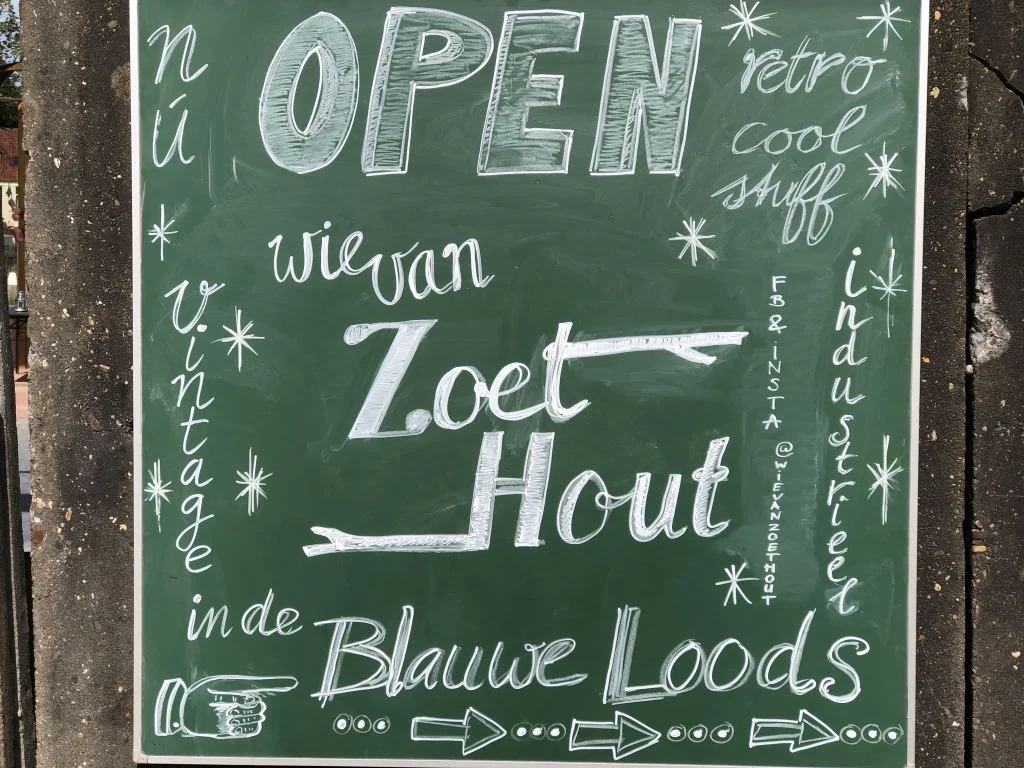 nú OPEN
retro
cool
stuff
wievan
Zoet
Hout
vintage
FB & INSTA @WIEVANZOETHOUT
industrieel
in de Blauwe Loods